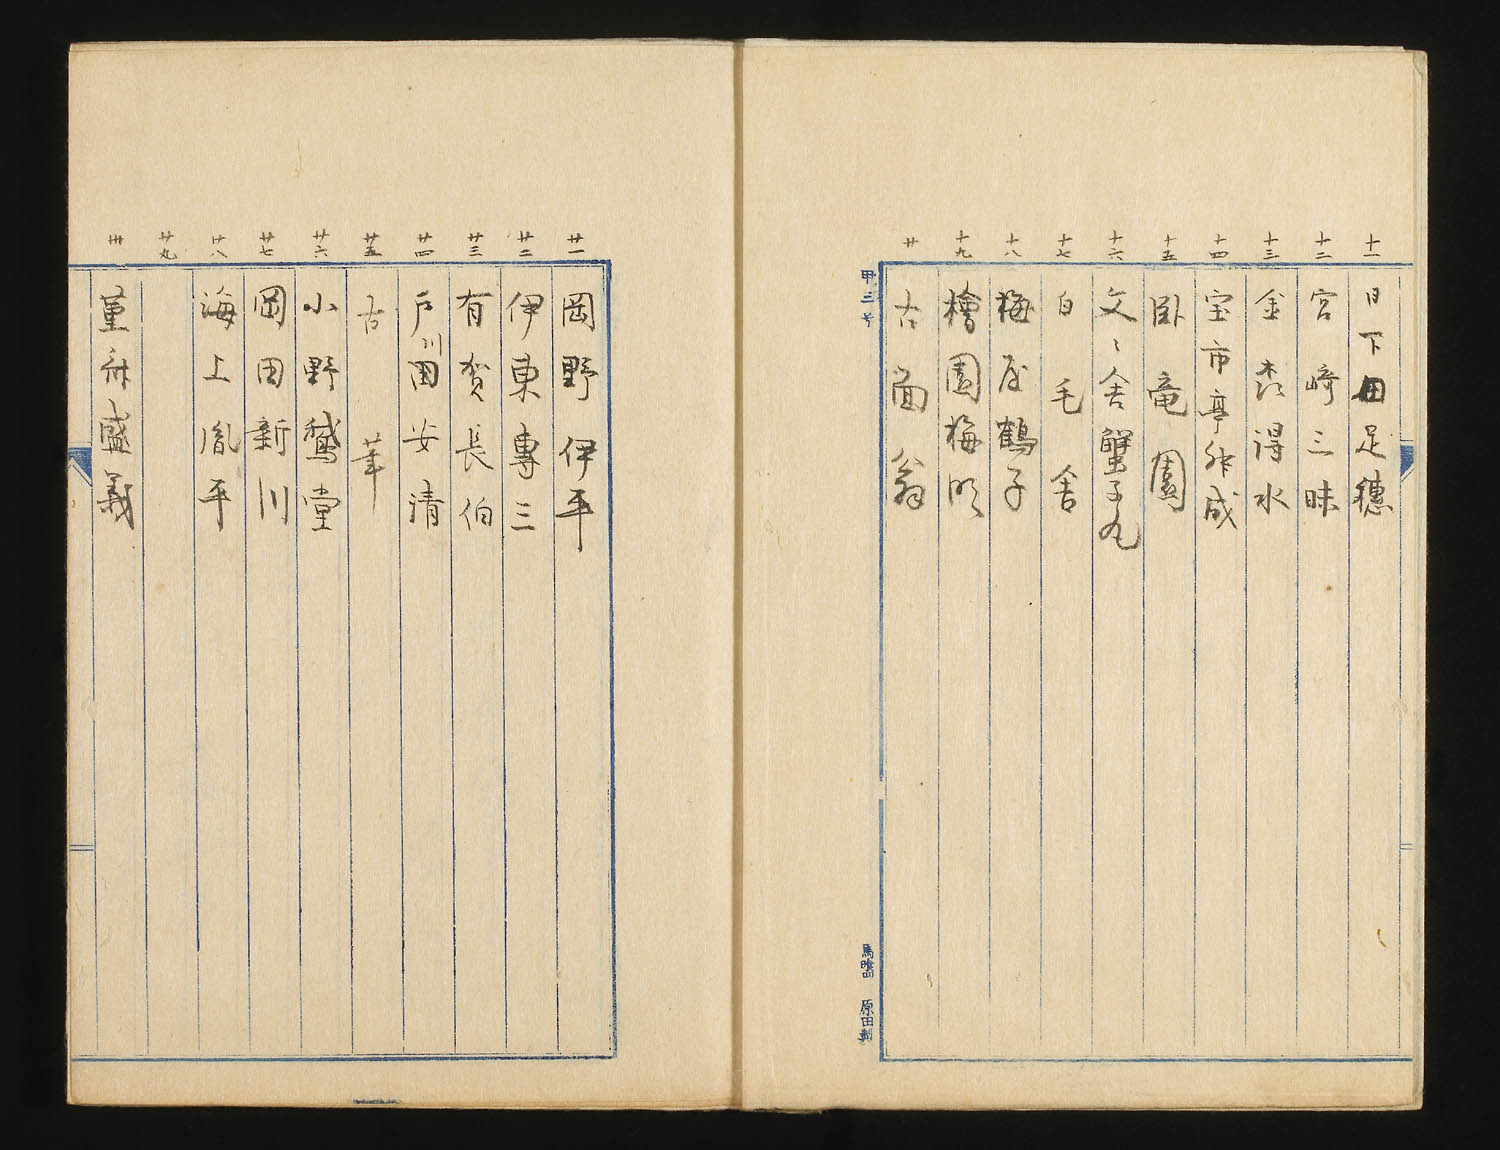 十一 日下田足穂
十二 宮崎三昧
十三 金森得水
十四 宝市亭升成
十五 臥竜園
十六 文々舎蟹子丸
十七 白毛舎
十八 梅屋鶴子
十九 檜園梅明
廿 古面翁
甲三号
馬喰四 原田製
廿一 岡野伊平
廿二 伊東専三
廿三 有賀長伯
廿四 戸田安清
川
廿五 古筆
廿六 小野鵞堂
廿七 岡田新川
廿八 海上胤平
廿九
卅 菫舟盛義